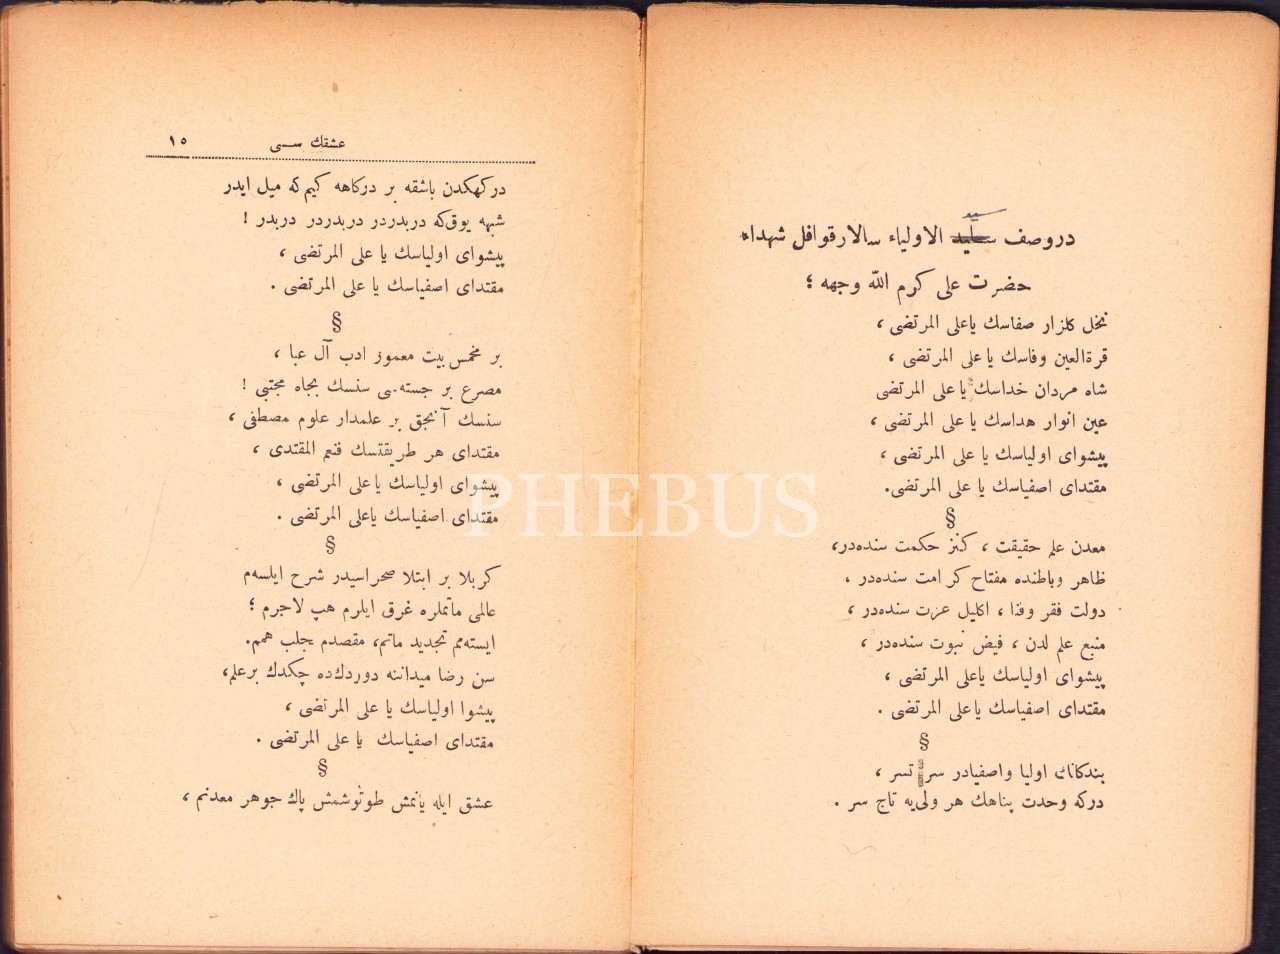 دروصف سلید سید الاولیاء سالار قوافل شهداء
حضرت علی کرم الله وجهه ؛
نخل کلزار صفاسك یاعلی المرتضی ،
قرةالعین وفاسك یاعلی المرتضی ،
شاه مردان خداسك یاعلی المرتضی
عین انوار هداسك یا علی المرتضی ،
پیشوای اولیاسك یا علی المرتضی ،
مقتدای اصفیاسك یا علی المرتضی.
§
معدن علم حقیقت ، کنز حکمت سنده‌در،
ظاهر وباطنده مفتاح کرامت سنده‌در ،
دولت فقر وفنا ، اکلیل عزت سنده‌در ،
منبع علم لدن ، فیض نبوت سنده‌در ،
پیشوای اولیاسك یاعلی المرتضی ،
مقتدای اصفیاسك یاعلی المرتضی .
§
بندکانك اولیا واصفیادر سر تسر ،
درکه وحدت پناهك هر ولی‌یه تاج سر .
عشقك سسی ١٥
درکهکدن باشقه بر درکاهه کیم که میل ایدر
شبهه یوق که دربدردر دربدردر دربدر !
پیشوای اولیاسك یا علی المرتضی ،
مقتدای اصفیاسك یا علی المرتضی .
§
بر مخمس بیت معمور ادب آل عبا ،
مصرع بر جسته‌سی سنسك بجاه مجتبی !
سنسك آنجق بر علمدار علوم مصطفی ،
مقتدای هر طریقتسك فنعم المقتدی ،
پیشوای اولیاسك یاعلی المرتضی ،
مقتدای اصفیاسك یاعلی المرتضی .
§
کربلا بر ابتلا صحراسیدر شرح ایلسه‌م
عالمی ماتملره غرق ایلرم هپ لاجرم ؛
ایسته‌مم تجدید ماتم، مقصدم جلب همم.
سن رضا میداننه دوردك‌ده چکدك بر علم،
پیشوا اولیاسك یا علی المرتضی ،
مقتدای اصفیاسك یا علی المرتضی .
§
عشق ایله یانمش طوتوشمش پاك جوهر معدنم ،
PHEBUS